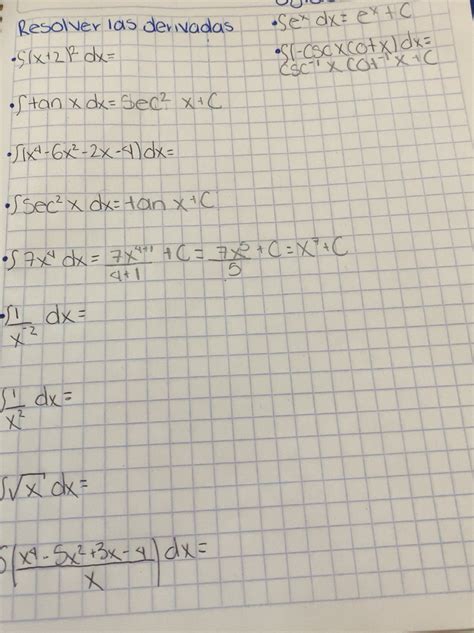 Resolver las derivadas
•∫(x+2)² dx=
•∫tan x dx=Sec² x+C
•∫(x⁴-6x²-2x-4)dx=
•∫Sec² x dx=tan x+C
•∫7x⁴ dx=7x⁴⁺¹/4+1+C=7x⁵/5+C=x⁷+C
•∫1/x⁻² dx=
∫1/x² dx=
∫√x dx=
∫(x⁴-5x²+3x-4/x)dx=
•∫eˣ dx=eˣ+C
•∫(-CSC x Cot x)dx=
CSC⁻¹ x Cot⁻¹ x+C